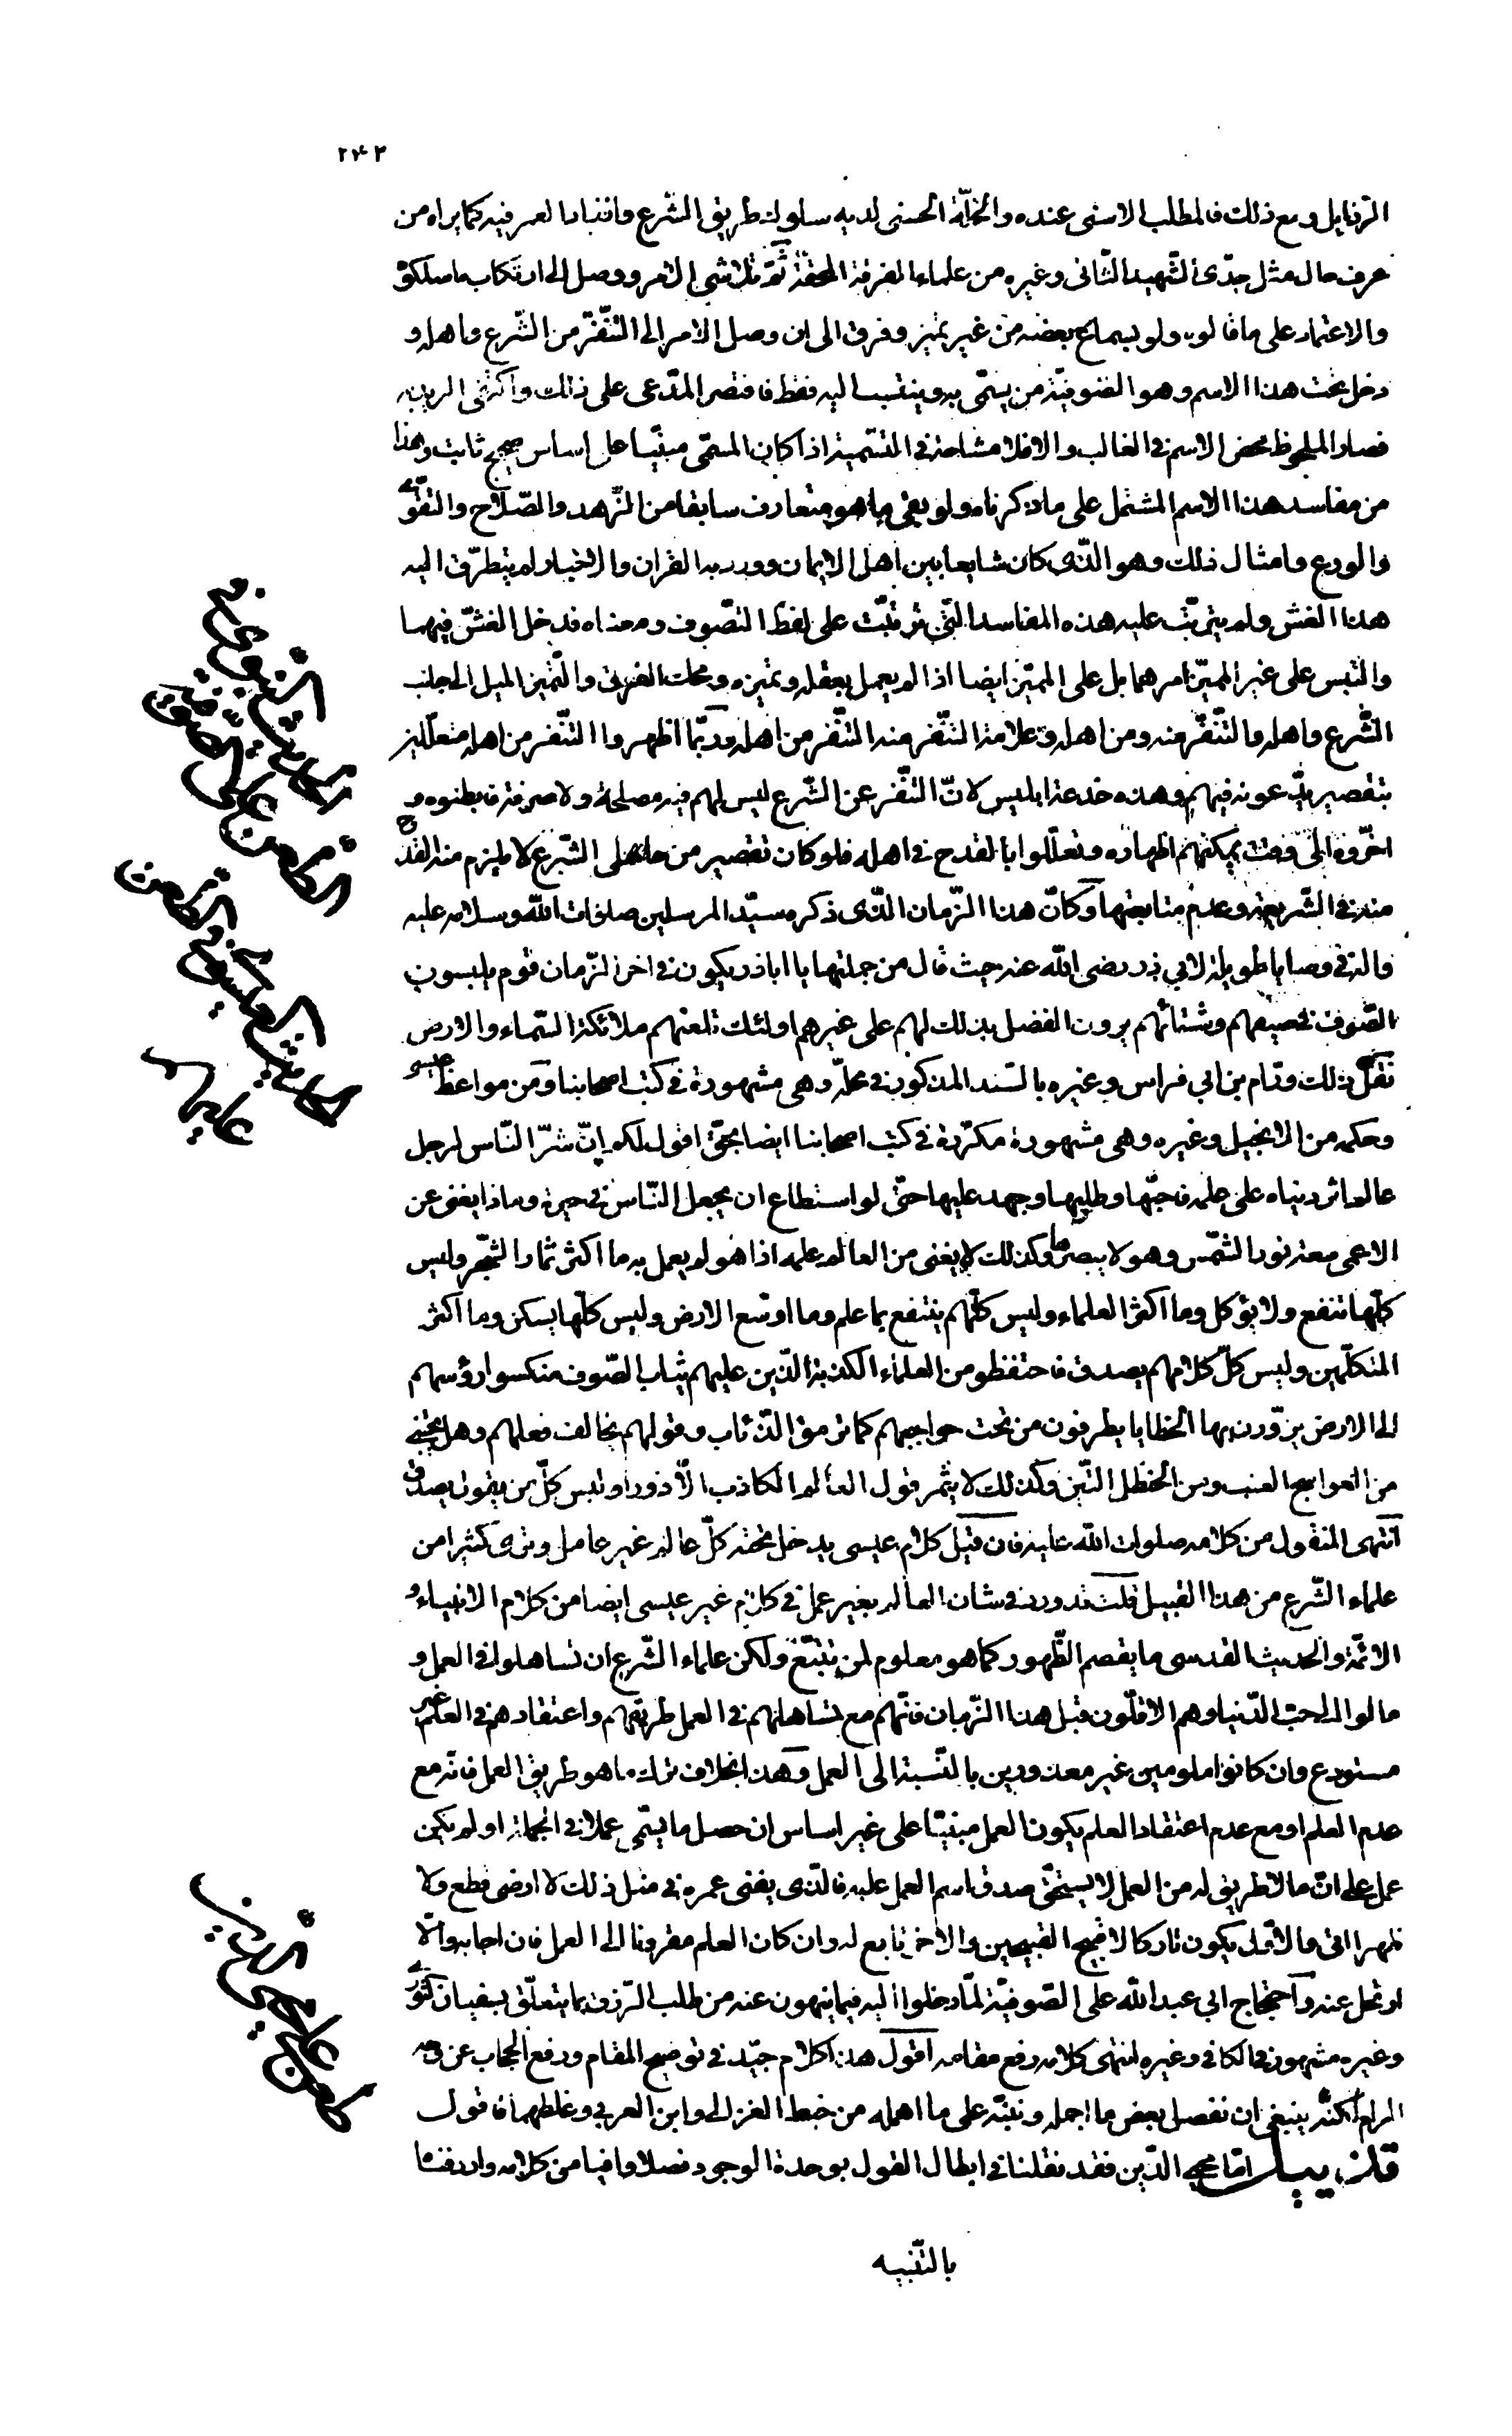 ۲۴۲
الرذايل ومع ذلك فالمطلب الاسنى عنده والخلّة الحسنى لديه سلوك طريق الشرع وانقياد العرفية كما يراه من
عرف حال مثل جدّى الشّهيد الثّانى وغيره من علماء الفرقة المحقّة ثمّ تلاشى الامر ووصل الى ارتكاب ما سلكوه
والاعتماد على ما قالوه ولو بسماع بعضه من غير تميز وفرق الى ان وصل الامر الى التنفّر من الشّرع واهله و
دخل تحت هذا الاسم وهو الصّوفيّة من يسمّى به وينتسب اليه فقط فاقتصر المدّعى على ذلك واكتفى المريد به
فصار الملحوظ محض الاسم فى الغالب والا فلا مشاحة فى التسمية اذا كان المسمّى مبنيّا على اساس صحيح ثابت وهذا
من مفاسد هذا الاسم المشتمل على ما ذكرناه ولو بقى ما هو متعارف سابقا من الزّهد والصّلاح والتقوّى
والورع وامثال ذلك وهو الذّى كان شايعا بين اهل الايمان وورد به القران والاخبار لم يتطرّق اليه
هذا الغش ولم يترتّب عليه هذه المفاسد التّى ترتّبت على لفظ التصّوف ومعناه فدخل الغشّ فيهما
والتبس على غير المميّز امرهما بل على المميّز ايضا اذا لم يعمل بعقله وتميزه ومحك الفرق والتّميز الميل الى جانب
الشّرع واهله والتنّفّر منه ومن اهله وعلامة التنفّر منه التنّفر من اهله وربّما اظهروا التنّفر من اهله متعلّلين
بتقصير يدّعونه فيهم وهذه خدعة ابليس لانّ التنّفر عن الشّرع ليس لهم فيه مصلحة ولا صرفة فابطنوه و
اخّروه الى وقت يمكنهم اظهاره وتعلّلوا بالقدح فى اهله فلو كان تقصير من حاملى الشّرع لا يلزم منه القدح
منه فى الشّريعة وعدم متابعتها وكانّ هذا الزّمان الذّى ذكره سيّد المرسلين صلوات اللّه وسلامه عليه
واله فى وصايا طويلة لابى ذر رضى اللّه عنه حيث قال من جملتها يا اباذر يكون فى اخر الزّمان قوم يلبسون
الصّوف فى صيفهم وشتائهم يرون الفضل بذلك لهم على غيرهم اولئك تلعنهم ملائكة السّماء والارض
نقل ذلك ورّام بن ابى فراس وغيره بالسّند المذكور فى محلّه وهى مشهورة فى كتب اصحابنا ومن مواعظ عيسى
وحكمه من الانجيل وغيره وهى مشهورة مكرّرة فى كتب اصحابنا ايضا بحقّ اقول لكم انّ شرّ النّاس لرجل
عالم اثر دنياه على علمه فاحبّها وطلبها وجهد عليها حتّى لو استطاع ان يجعل النّاس فى حيرة وماذا يغنى عن
الاعمى سعة نور الشّمس وهو لا يبصرها وكذلك لا يغنى من العالم علمه اذا هو لم يعمل به ما اكثر ثمار الشّجر وليس
كلّها تنفع ولا يؤكل وما اكثر العلماء وليس كلّهم ينتفع بما علم وما اوسع الارض وليس كلّها يسكن وما اكثر
المتكلّمين وليس كلّ كلامهم يصدق فاحتفظوا من العلماء الكذبة الذّين عليهم ثياب الصّوف منكسوا رؤسهم
الى الارض يزوّرون بها الخطايا يطرفون من تحت حواجبهم كما ترمق الذّئاب وقولهم يخالف فعلهم وهل يجتنى
من العواسج العنب ومن الحنظل التّين وكذلك لا يثمر قول العالم الكاذب الاّ زورا وليس كلّ من يقول يصدق
انتهى المنقول من كلامه صلوات اللّه عليه فان قيل كلام عيسى يدخل تحته كلّ عالم غير عامل ونرى كثيرا من
علماء الشّرع من هذا القبيل قلت قد ورد فى شان العالم بغير عمل فى كلام غير عيسى ايضا من كلام الانبياء و
الائمّة والحديث القدسى ما يقصم الظّهور كما هو معلوم لمن تتبّع ولكن علماء الشّرع ان تساهلوا فى العمل و
مالوا الى حبّ الدّنيا وهم الاقلّون قبل هذا الزّمان فانّهم مع تساهلهم فى العمل طريقهم واعتقادهم فى العلم غير
مستودع وان كانوا ملومين غير معذورين بالنّسبة الى العمل وهذا بخلاف ترك ما هو طريق العمل فانّه مع
عدم العلم او مع عدم اعتقاد العلم يكون العمل مبنيّا على غير اساس ان حصل ما يسمّى عملا فى الجملة او لم يكن
عمل على انّ ما لا طريق له من العمل لا يستحّق صدق اسم العمل عليه فالذّى يفنى عمره فى مثل ذلك لا ارضى قطع ولا
ظهرا ابقى والاوّل يكون تاركا لاقبح القبيحين والاخر تابع له وان كان العلم مقرونا الى العمل فان اجابه والّا
ارتحل عنه واحتجاج ابى عبد اللّه على الصّوفيّة لمّا دخلوا اليه فيما ينهون عنه من طلب الرّزق بما يتعلّق بسفيان الثّورى
وغيره مشهور فى الكافى وغيره انتهى كلامه رفع مقامه اقول هذا كلام جيّد فى توضيح المقام ورفع الحجاب عن وجه
المرام لكنّه ينبغى ان نفصل بعض ما اجمله وننبّه على ما اهمله من خبط الغزالى وابن العربى وغلطهما فاقول
تذييل امّا محيى الدّين فقد نقلنا فى ابطال القول بوحدة الوجود فصلا وافيا من كلامه واردفنا
بالتّنبيه